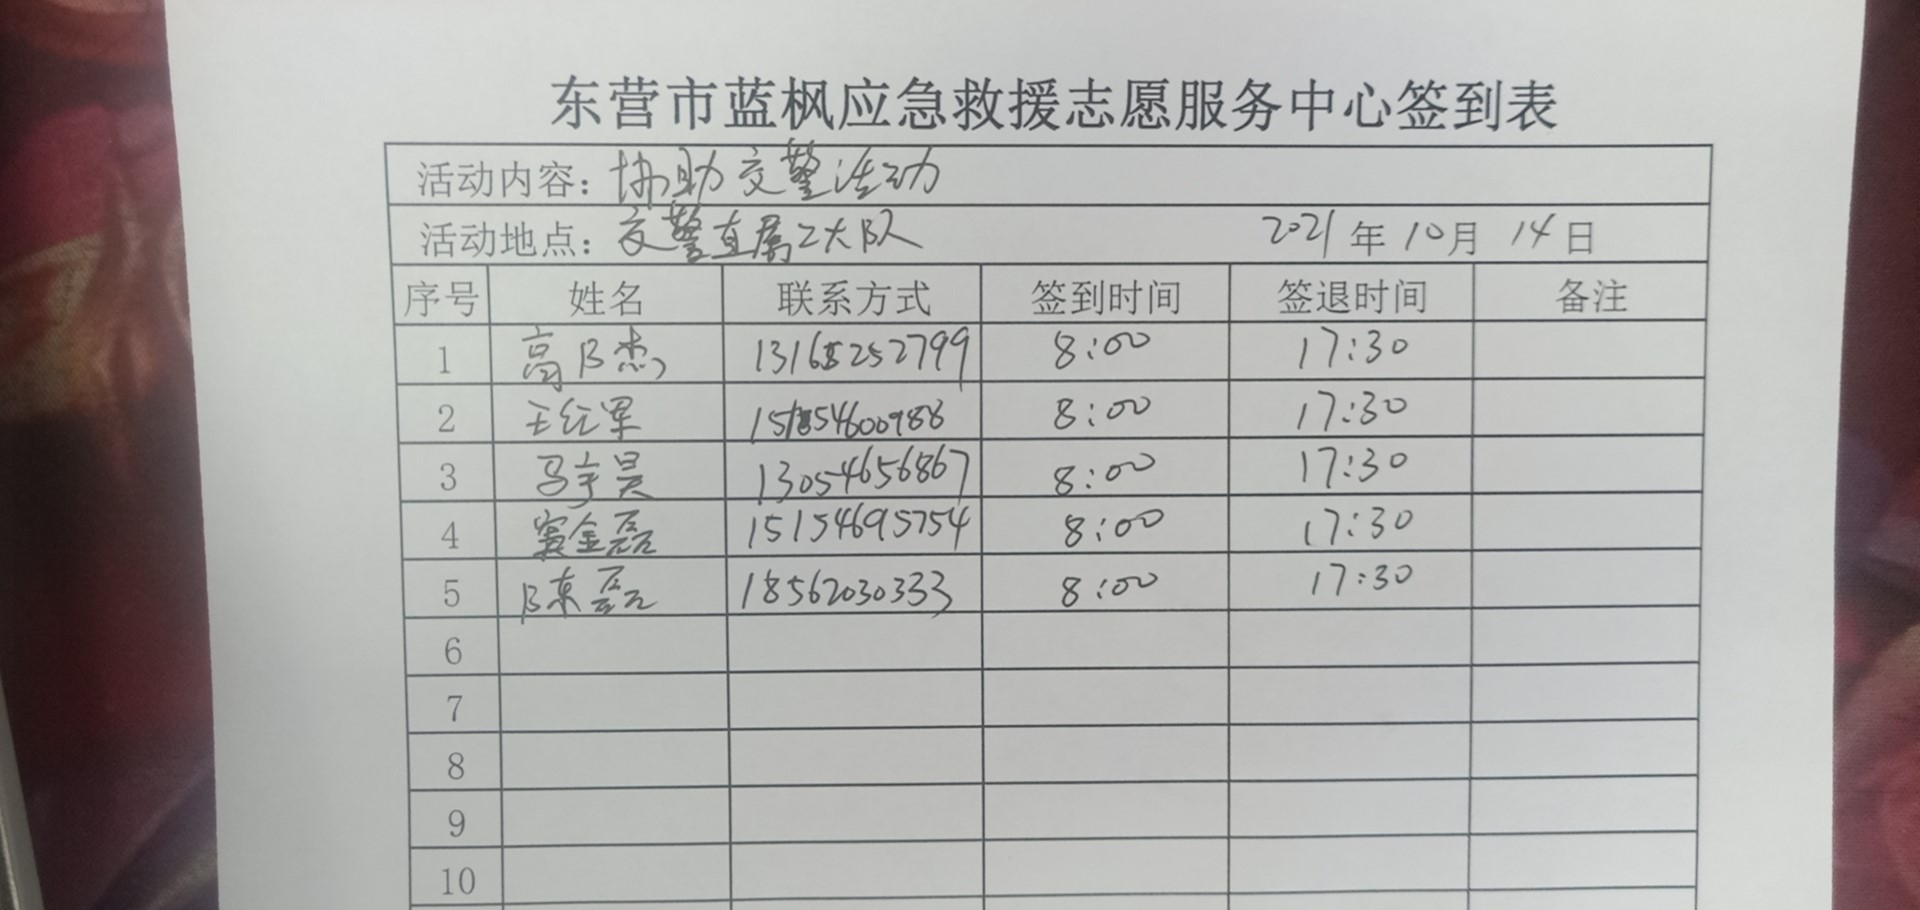 东营市蓝枫应急救援志愿服务中心签到表
活动内容：协助交警活动
活动地点：交警直属二大队 2021年10月14日
序号 姓名 联系方式 签到时间 签退时间 备注
1 高 杰 8:00 17:30
2 王红军 8:00 17:30
3 马宇昊 13054656867 8:00 17:30
4 窦金磊 15154695754 8:00 17:30
5 陈磊 18562030333 8:00 17:30
6
7
8
9
10